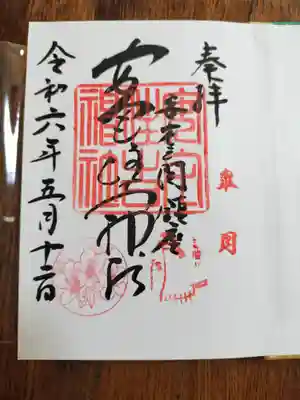 奉拝
皐月
安宅之関鎮座
安宅住吉神社
安宅住吉神社
令和六年五月十二日